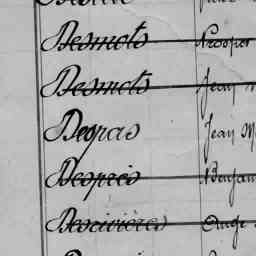 Desmots Prosper
Desmots Jean
Despas Jean M
Despres Benjam
Desrivières Ange